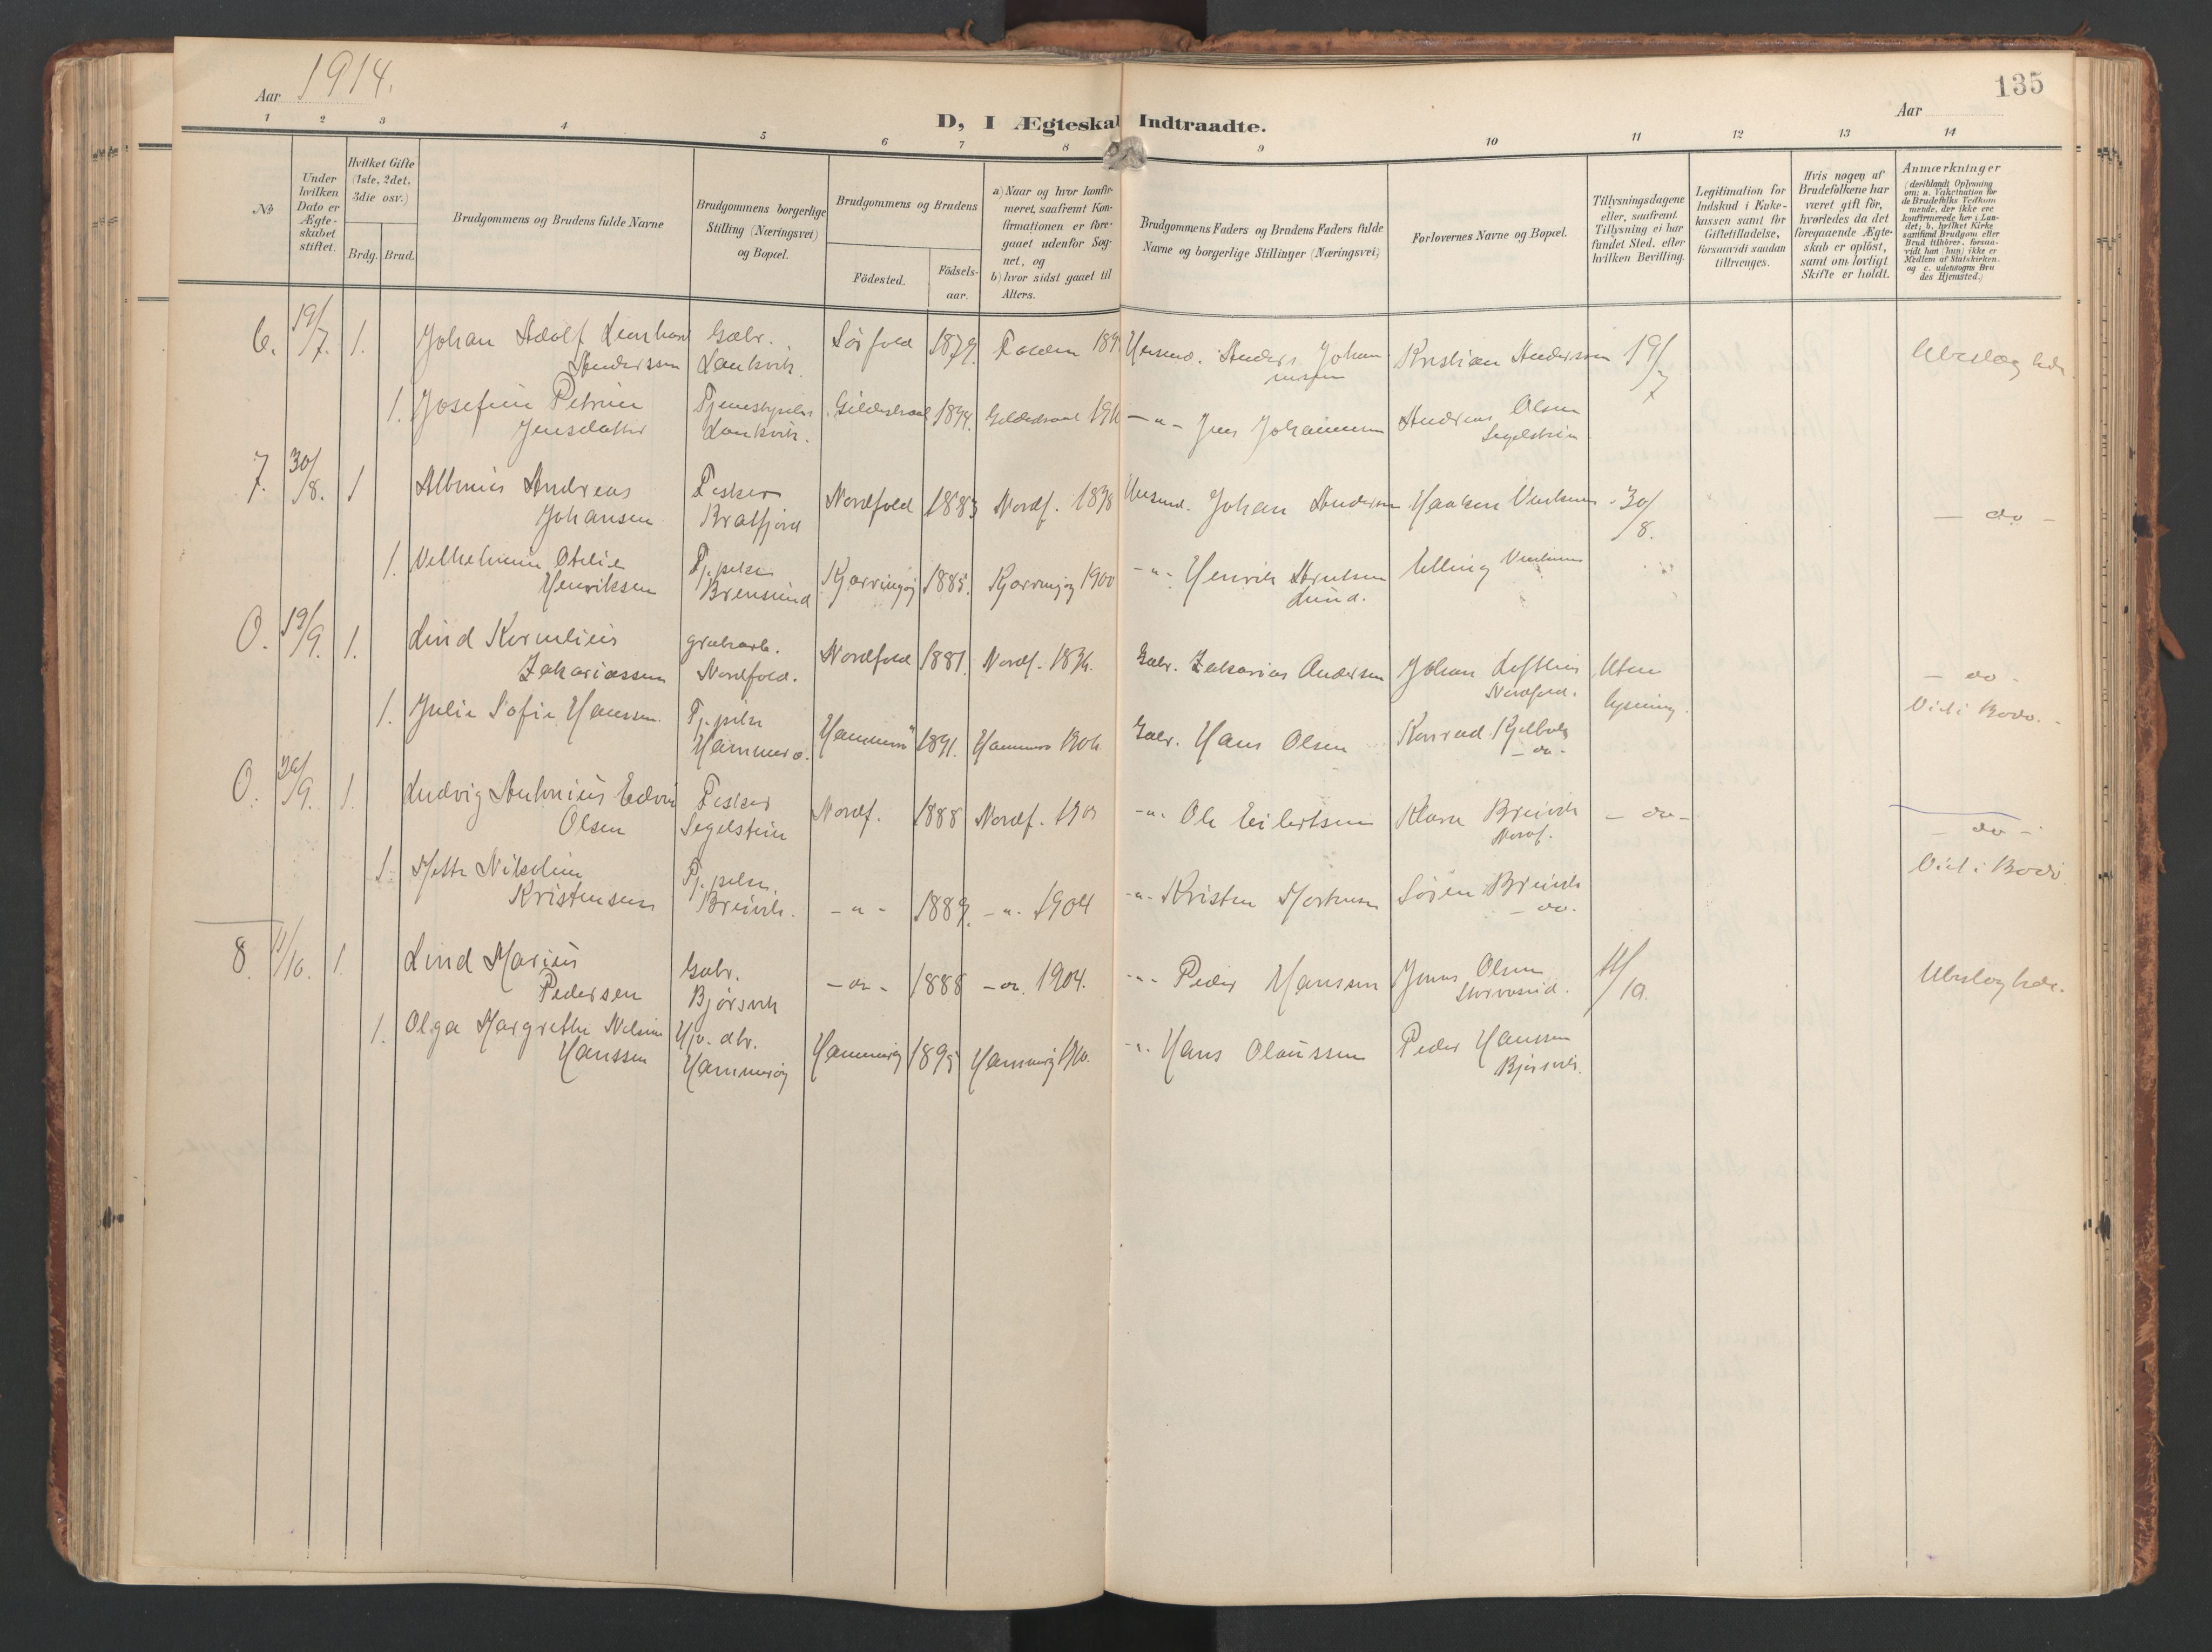 Aar 1914.
135
Aar
D, I Ægteskab Indtraadte.
1 2 3 4 5 6 7 8 9 10 11 12 13 14
No
Under
hvilken
Dato er
Ægte-
skabet
stiftet.
Hvilket Gifte
(1ste, 2det,
3die osv.)
Brdg.
Brud.
Brudgommens og Brudens fulde Navne
Brudgommens borgerlige
Stilling (Næringsvei)
og Bopæl.
Brudgommens og Brudens
Födested.
Födsels-
aar.
a) Naar og hvor konfir-
meret, saafremt Kon-
firmationen er fore-
gaaet udenfor Sog-
net, og
b) hvor sidst gaaet til
Alters.
Brudgommens Faders og Brudens Faders fulde
Navne og borgerlige Stillinger (Næringsvei)
Forlovernes Navne og Bopæl.
Tillysningsdagene
eller, saafremt
Tillysning ei har
fundet Sted, efter
hvilken Bevilling.
Legitimation for
Indskud i Enke-
kassen samt för
Giftetilladelse,
forsaavidt saadan
tiltrænges.
Hvis nogen af
Brudefolkene har
været gift för,
hvorledes da det
foregaaende Ægte-
skab er oplöst,
samt om lovligt
Skifte er holdt.
Anmærkninger
(deriblandt Oplysning
om: a. Vakcination for
de Brudefolks Vedkom
mende, der ikke ere
konfirmerede her i Lan-
det; b. hvilket Kirke
samfund Brudgom eller
Brud tilhörer, forsaa-
vidt han (hun) ikke er
Medlem af Statskirken.
og c. udensogns Bru
des Hjemsted.)
6. 19/7. 1. Johan Adolf Leonhard Gabr. Sørfold 1879. Folden Anders Johan Kristian Anderssen 19/7
Anderssen
1. Josefine Petrine Gildeskaal 1894. Gildeskaal -"- Jens Johannesen Andreas Olsen
Jensdatter Segelstein
7. 30/8. 1 Albinus Andreas Fisker Nordfold 1883 Nordf. 1898 Johan Andersen 30/8.
Johansen
1. Vilhelmine Otelie Tj.pike Kjerringøy 1885. Kjerringøy 1900 -"- Henrik Elling
Henriksen Brensund Lund.
0. 19/9. 1. Lind Kornelius grubearb. Nordfold 1881. Nordf. 1896. Gabr. Zakarias Andersen Johan Uten - do -
Zakariassen Nordfold. Nordfold. lysning.
1. Julie Sofie Hanssen. Tj.pike Hammerø 1891. Hammerø 1906. Gabr. Hans Olsen Konrad Viet i Bodø.
Hammerø. - do -
0. 26/9. 1. Ludvig Antonius Edvin Fisker Nordf. 1888 Nordf. -"- Ole Eilertsen Breivik - do - - do -
Olsen Segelstein Nordf.
1. Mette Nikoline Tj.pike -"- 1889. -"- 1904 -"- Kristen Mortensen Søren Breivik Viet i Bodø
Kristensen Breivik. - do -
8. 11/10. 1. Lind Marius Gabr. - do - 1888 - do - 1904. -"- Peder Hanssen Jonas Olsen 11/10.
Pedersen Bjørsvik
1. Olga Margrethe Hammerøy 1895 Hammerøy 1910. -"- Hans Olaussen Peder Hanssen
Hanssen Hammerøy Bjørsvik.